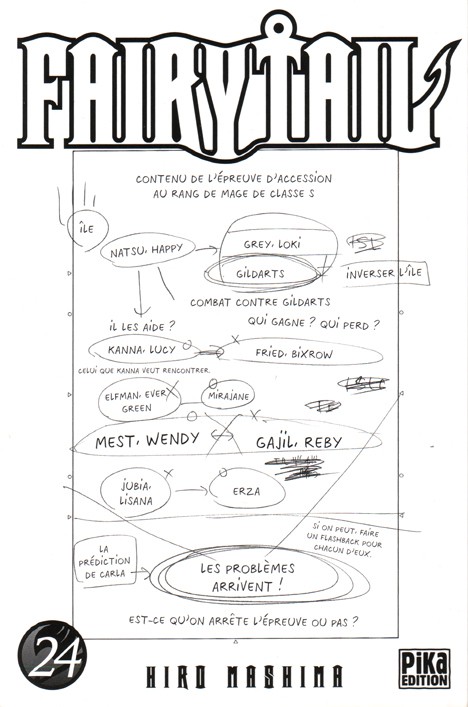 FAIRY TAIL
CONTENU DE L'ÉPREUVE D'ACCESSION
AU RANG DE MAGE DE CLASSE S
ÎLE
NATSU, HAPPY
GREY, LOKI
GILDARTS
INVERSER L'ÎLE
COMBAT CONTRE GILDARTS
IL LES AIDE ?
QUI GAGNE ? QUI PERD ?
KANNA, LUCY
FRIED, BIXROW
CELUI QUE KANNA VEUT RENCONTRER.
ELFMAN, EVER
GREEN
MIRAJANE
MEST, WENDY
GAJÏL, REBY
JUBIA,
LISANA
ERZA
SI ON PEUT, FAIRE
UN FLASHBACK POUR
CHACUN D'EUX.
LA
PRÉDICTION
DE CARLA
LES PROBLÈMES
ARRIVENT !
EST-CE QU'ON ARRÊTE L'ÉPREUVE OU PAS ?
24
HIRO MASHIMA
PIKA
EDITION